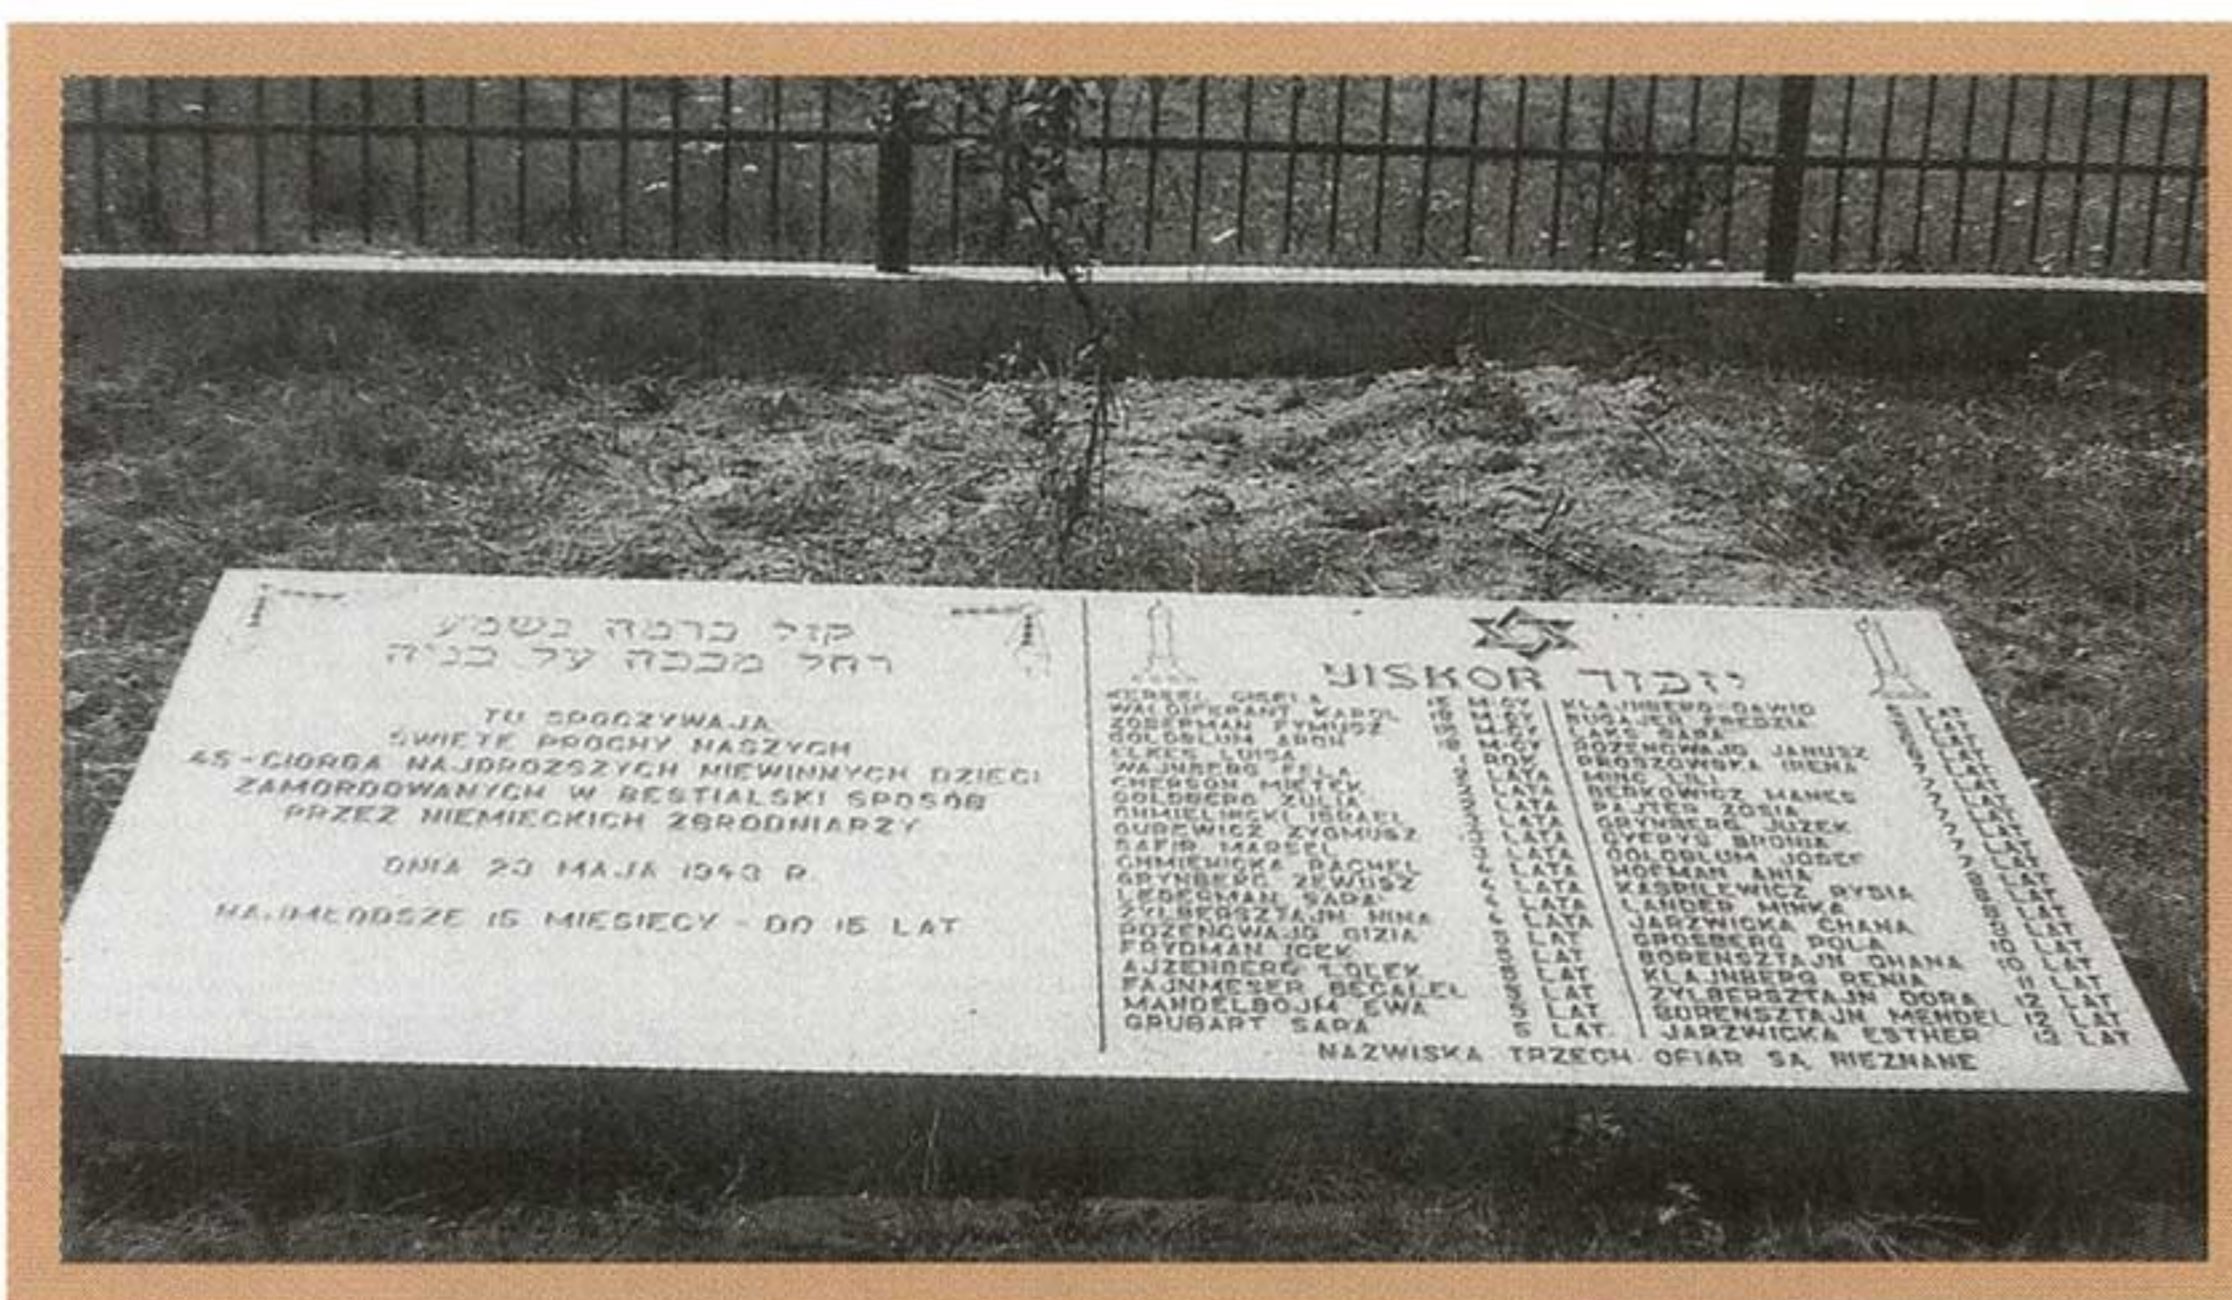 קול ברמה נשמע
רחל מבכה על בניה
TU SPOCZYWAJĄ
ŚWIĘTE PROCHY NASZYCH
45-CIORGA NAJDROŻSZYCH NIEWINNYCH DZIECI
ZAMORDOWANYCH W BESTIALSKI SPOSÓB
PRZEZ NIEMIECKICH ZBRODNIARZY
DNIA 23 MAJA 1943 R.
NAJMŁODSZE 15 MIESIĘCY - DO 15 LAT
YISKOR יזכור
GISELA 15 M-CY
WALDIFERANT KAROL M-CY
ZOBERMAN RYMUSZ M-CY
GOLDBLUM ARON 18 M-CY
ELKES LUISA ROK
WAJNBERG FELA LATA
CHERSON MIETEK LATA
GOLDBERG ZULIA LATA
CHMIELINSKI ISRAEL LATA
GUREWICZ ZYGMUSZ LATA
SAFIR MARSEL LATA
RACHEL 4 LATA
GRYNBERG ZEWUSZ 4 LATA
LEDERMAN SARA 4 LATA
ZYLBERSZTAJN NINA 4 LATA
ROZENCWAJG GIZIA 5 LAT
FRYDMAN ICEK 5 LAT
AJZENBERG LOLEK 5 LAT
FAJNMESER BECALEL 5 LAT
MANDELBOJM EWA 5 LAT
GRUBART SARA 5 LAT
KLAJNBERG DAWID LAT
BUGAJER FREDZIA LAT
LAKS SARA LAT
ROZENCWAJG JANUSZ LAT
PROSZOWSKA IRENA LAT
MINC LILI LAT
BERKOWICZ MANES LAT
RAJTER ZOSIA LAT
GRYNBERG JUZEK LAT
BRONIA LAT
GOLDBLUM JOSEF LAT
HOFMAN ANIA LAT
KASRILEWICZ RYSIA LAT
LANDER MINKA LAT
JARZWICKA CHANA LAT
GROSBERG POLA 10 LAT
BORENSZTAJN CHANA 10 LAT
KLAJNBERG RENIA 11 LAT
ZYLBERSZTAJN DORA 12 LAT
BORENSZTAJN MENDEL 12 LAT
JARZWICKA ESTHER 13 LAT
NAZWISKA TRZECH OFIAR SĄ NIEZNANE